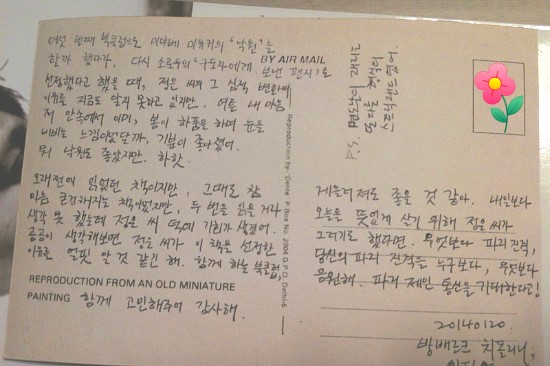 여섯 번째 북클럽으로 미야베 미유키의 '낙원'을
할까 했다가, 다시 소로우의 '구도자에게 보낸 편지'로
BY AIR MAIL
선정했다고 했을 때, 정은 씨의 그 심적 변화의
이유를 지금도 알지 못하고 있지만. 여튼 내 마음
저 안속에서 이미, 봄이 하품을 하며 눈을
비비는 느낌이었달까, 기분이 좋아졌어.
뭐 낙원도 좋았지만. 하핫.
오래전에 읽었던 책이지만, 그때도 참
마음 근거려지는 책이었지만, 두 번을 읽을 거라
생각 못 했는데 정은 씨 덕에 기회가 생겼어.
곰곰이 생각해보면 정은 씨가 이 책을 선정한
이유를 얼핏 알 것 같긴 해. 함께 하는 북클럽,
REPRODUCTION FROM AN OLD MINIATURE
PAINTING
함께 고민해주어 감사해.
Reproduction by : Dente P. Box No. 2004 G.P.O. Delhi-6
P.S.
게을러져도 좋을 것 같아. 내일보다
오늘을 뜻없게 살기 위해 정은 씨가
그러기로 했다면. 무엇보다 파리 진격,
당신의 파리 진격을 누구보다, 무엇보다
응원해. 파리 제인 통신을 기대한다고!
20140120.
방배르크 치폴리니,